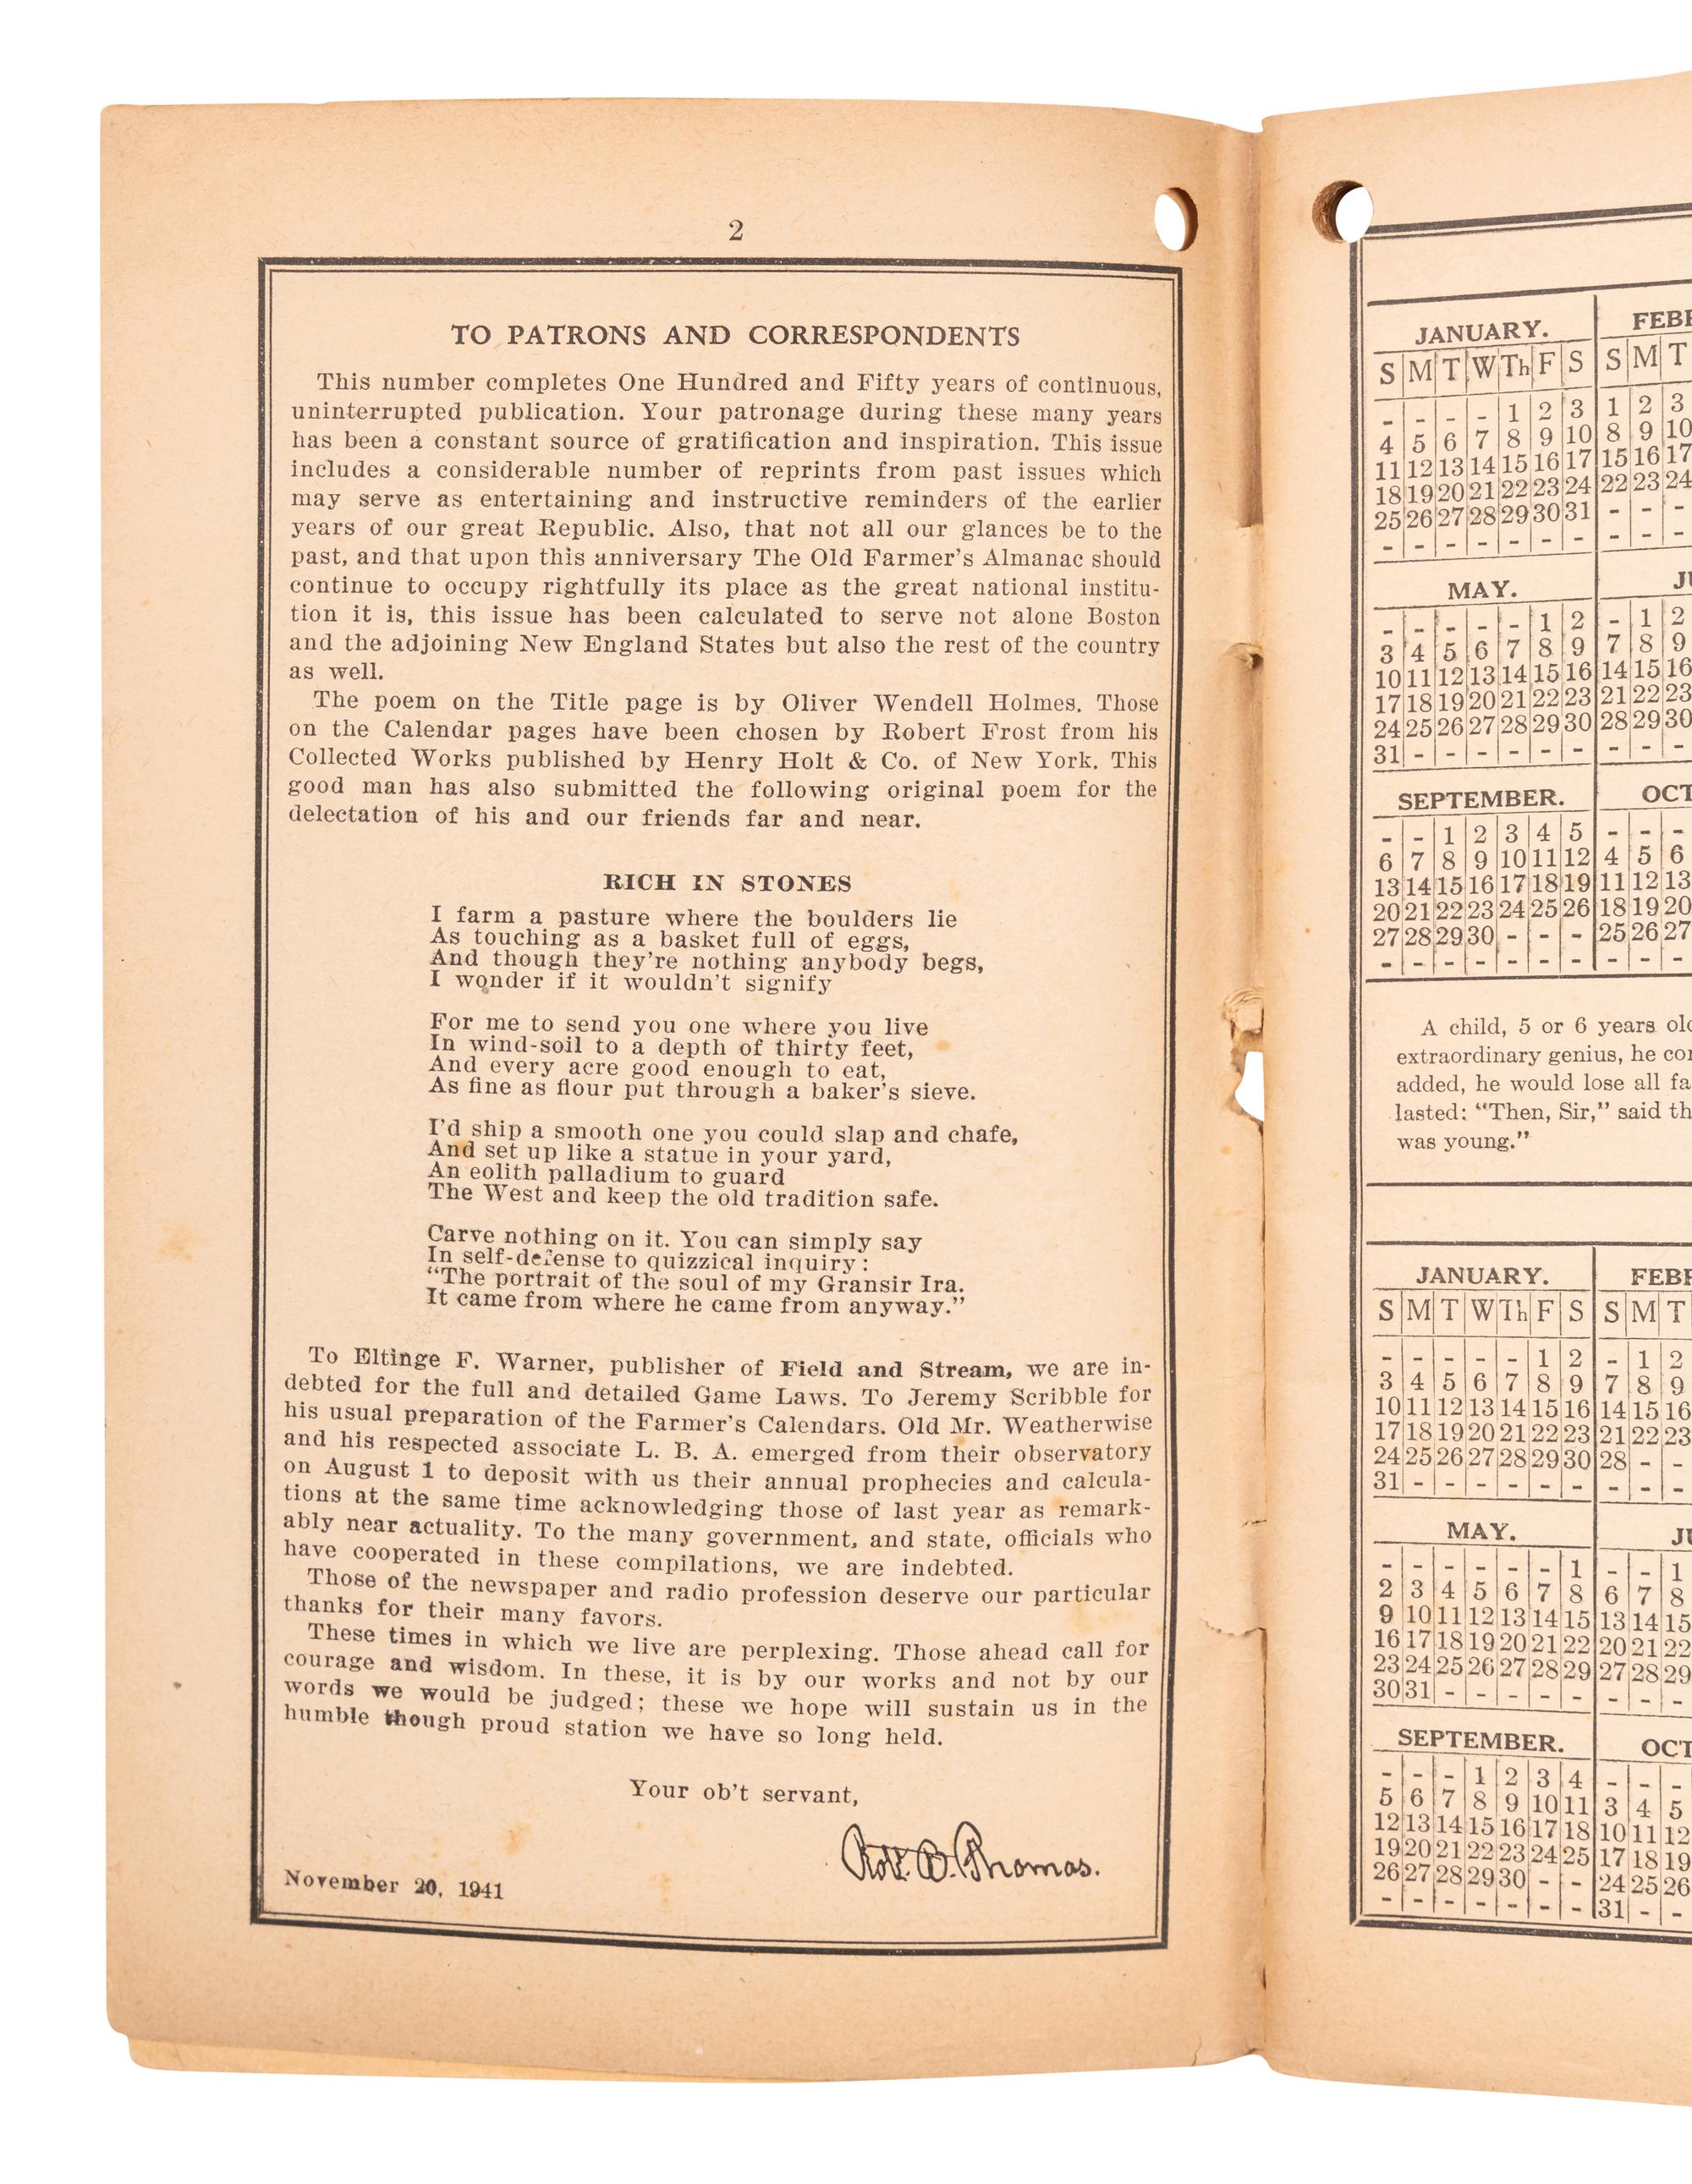 2
TO PATRONS AND CORRESPONDENTS
This number completes One Hundred and Fifty years of continuous,
uninterrupted publication. Your patronage during these many years
has been a constant source of gratification and inspiration. This issue
includes a considerable number of reprints from past issues which
may serve as entertaining and instructive reminders of the earlier
years of our great Republic. Also, that not all our glances be to the
past, and that upon this anniversary The Old Farmer's Almanac should
continue to occupy rightfully its place as the great national institu-
tion it is, this issue has been calculated to serve not alone Boston
and the adjoining New England States but also the rest of the country
as well.
The poem on the Title page is by Oliver Wendell Holmes. Those
on the Calendar pages have been chosen by Robert Frost from his
Collected Works published by Henry Holt & Co. of New York. This
good man has also submitted the following original poem for the
delectation of his and our friends far and near.
RICH IN STONES
I farm a pasture where the boulders lie
As touching as a basket full of eggs,
And though they're nothing anybody begs,
I wonder if it wouldn't signify
For me to send you one where you live
In wind-soil to a depth of thirty feet,
And every acre good enough to eat,
As fine as flour put through a baker's sieve.
I'd ship a smooth one you could slap and chafe,
And set up like a statue in your yard,
An eolith palladium to guard
The West and keep the old tradition safe.
Carve nothing on it. You can simply say
In self-defense to quizzical inquiry:
"The portrait of the soul of my Gransir Ira.
It came from where he came from anyway."
To Eltinge F. Warner, publisher of Field and Stream, we are in-
debted for the full and detailed Game Laws. To Jeremy Scribble for
his usual preparation of the Farmer's Calendars. Old Mr. Weatherwise
and his respected associate L. B. A. emerged from their observatory
on August 1 to deposit with us their annual prophecies and calcula-
tions at the same time acknowledging those of last year as remark-
ably near actuality. To the many government, and state, officials who
have cooperated in these compilations, we are indebted.
Those of the newspaper and radio profession deserve our particular
thanks for their many favors.
These times in which we live are perplexing. Those ahead call for
courage and wisdom. In these, it is by our works and not by our
words we would be judged; these we hope will sustain us in the
humble though proud station we have so long held.
Your ob't servant,
Robt. B. Thomas.
November 20, 1941
JANUARY. FEBR
S M T W Th F S S M T
- - - - 1 2 3 1 2 3
4 5 6 7 8 9 10 8 9 10
11 12 13 14 15 16 17 15 16 17
18 19 20 21 22 23 24 22 23 24
25 26 27 28 29 30 31 - - -
- - - - - - - - - -
MAY. JU
- - - - - 1 2 - 1 2
3 4 5 6 7 8 9 7 8 9
10 11 12 13 14 15 16 14 15 16
17 18 19 20 21 22 23 21 22 23
24 25 26 27 28 29 30 28 29 30
31 - - - - - - - - -
SEPTEMBER. OCT
- - 1 2 3 4 5 - - -
6 7 8 9 10 11 12 4 5 6
13 14 15 16 17 18 19 11 12 13
20 21 22 23 24 25 26 18 19 20
27 28 29 30 - - - 25 26 27
- - - - - - - - - -
A child, 5 or 6 years old
extraordinary genius, he con
added, he would lose all fa
lasted: "Then, Sir," said th
was young."
JANUARY. FEBR
S M T W Th F S S M T
- - - - - 1 2 - 1 2
3 4 5 6 7 8 9 7 8 9
10 11 12 13 14 15 16 14 15 16
17 18 19 20 21 22 23 21 22 23
24 25 26 27 28 29 30 28 - -
31 - - - - - - - - -
MAY. JU
- - - - - - 1 - - 1
2 3 4 5 6 7 8 6 7 8
9 10 11 12 13 14 15 13 14 15
16 17 18 19 20 21 22 20 21 22
23 24 25 26 27 28 29 27 28 29
30 31 - - - - - - - -
SEPTEMBER. OCT
- - - 1 2 3 4 - - -
5 6 7 8 9 10 11 3 4 5
12 13 14 15 16 17 18 10 11 12
19 20 21 22 23 24 25 17 18 19
26 27 28 29 30 - - 24 25 26
- - - - - - - 31 - -